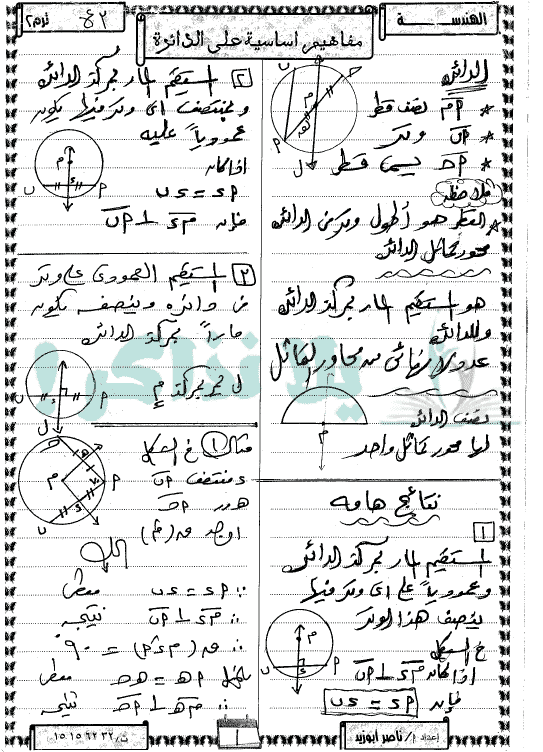 الهندسة
مفاهيم أساسية على الدائرة
ع٢ ترم٢
الدائرة
* م٢ نصف قطر
* ٢ب وتر
* ٢ح يسمى قطر
ملاحظة
* القطر هو أطول وتر في الدائرة
محور تماثل الدائرة
هو المستقيم المار بمركز الدائرة
وللدائرة
عدد لا نهائى من محاور التماثل
نصف الدائرة
لها محور تماثل واحد
نتائج هامة
١
المستقيم المار بمركز الدائرة
وعمودياً على أى وتر فيها
ينصف هذا الوتر
فى الشكل
اذا كان م٥ ⊥ ٢ب
فإن ٢٥ = ٥ب
٢ المستقيم المار بمركز الدائرة
وبمنتصف أى وتر فيها يكون
عمودياً عليه
اذا كان
٢٥ = ٥ب
فإن م٥ ⊥ ٢ب
٣ المستقيم العمودى على وتر
فى دائرة وينصفه يكون
ماراً بمركز الدائرة
ل يمر بمركز م
مثال ١ فى الشكل
٥ منتصف ٢ب
ه منتصف ٢ح
أوجد
الحل
∵ ٢٥ = ٥ب معطى
∴ م٥ ⊥ ٢ب نتيجة
∴ = ٩٠°
بالمثل ٢ه = هح معطى
∴ مه ⊥ ٢ح نتيجة
يلا نذاكر
إعداد أ/ ناصر أبوزيد
١